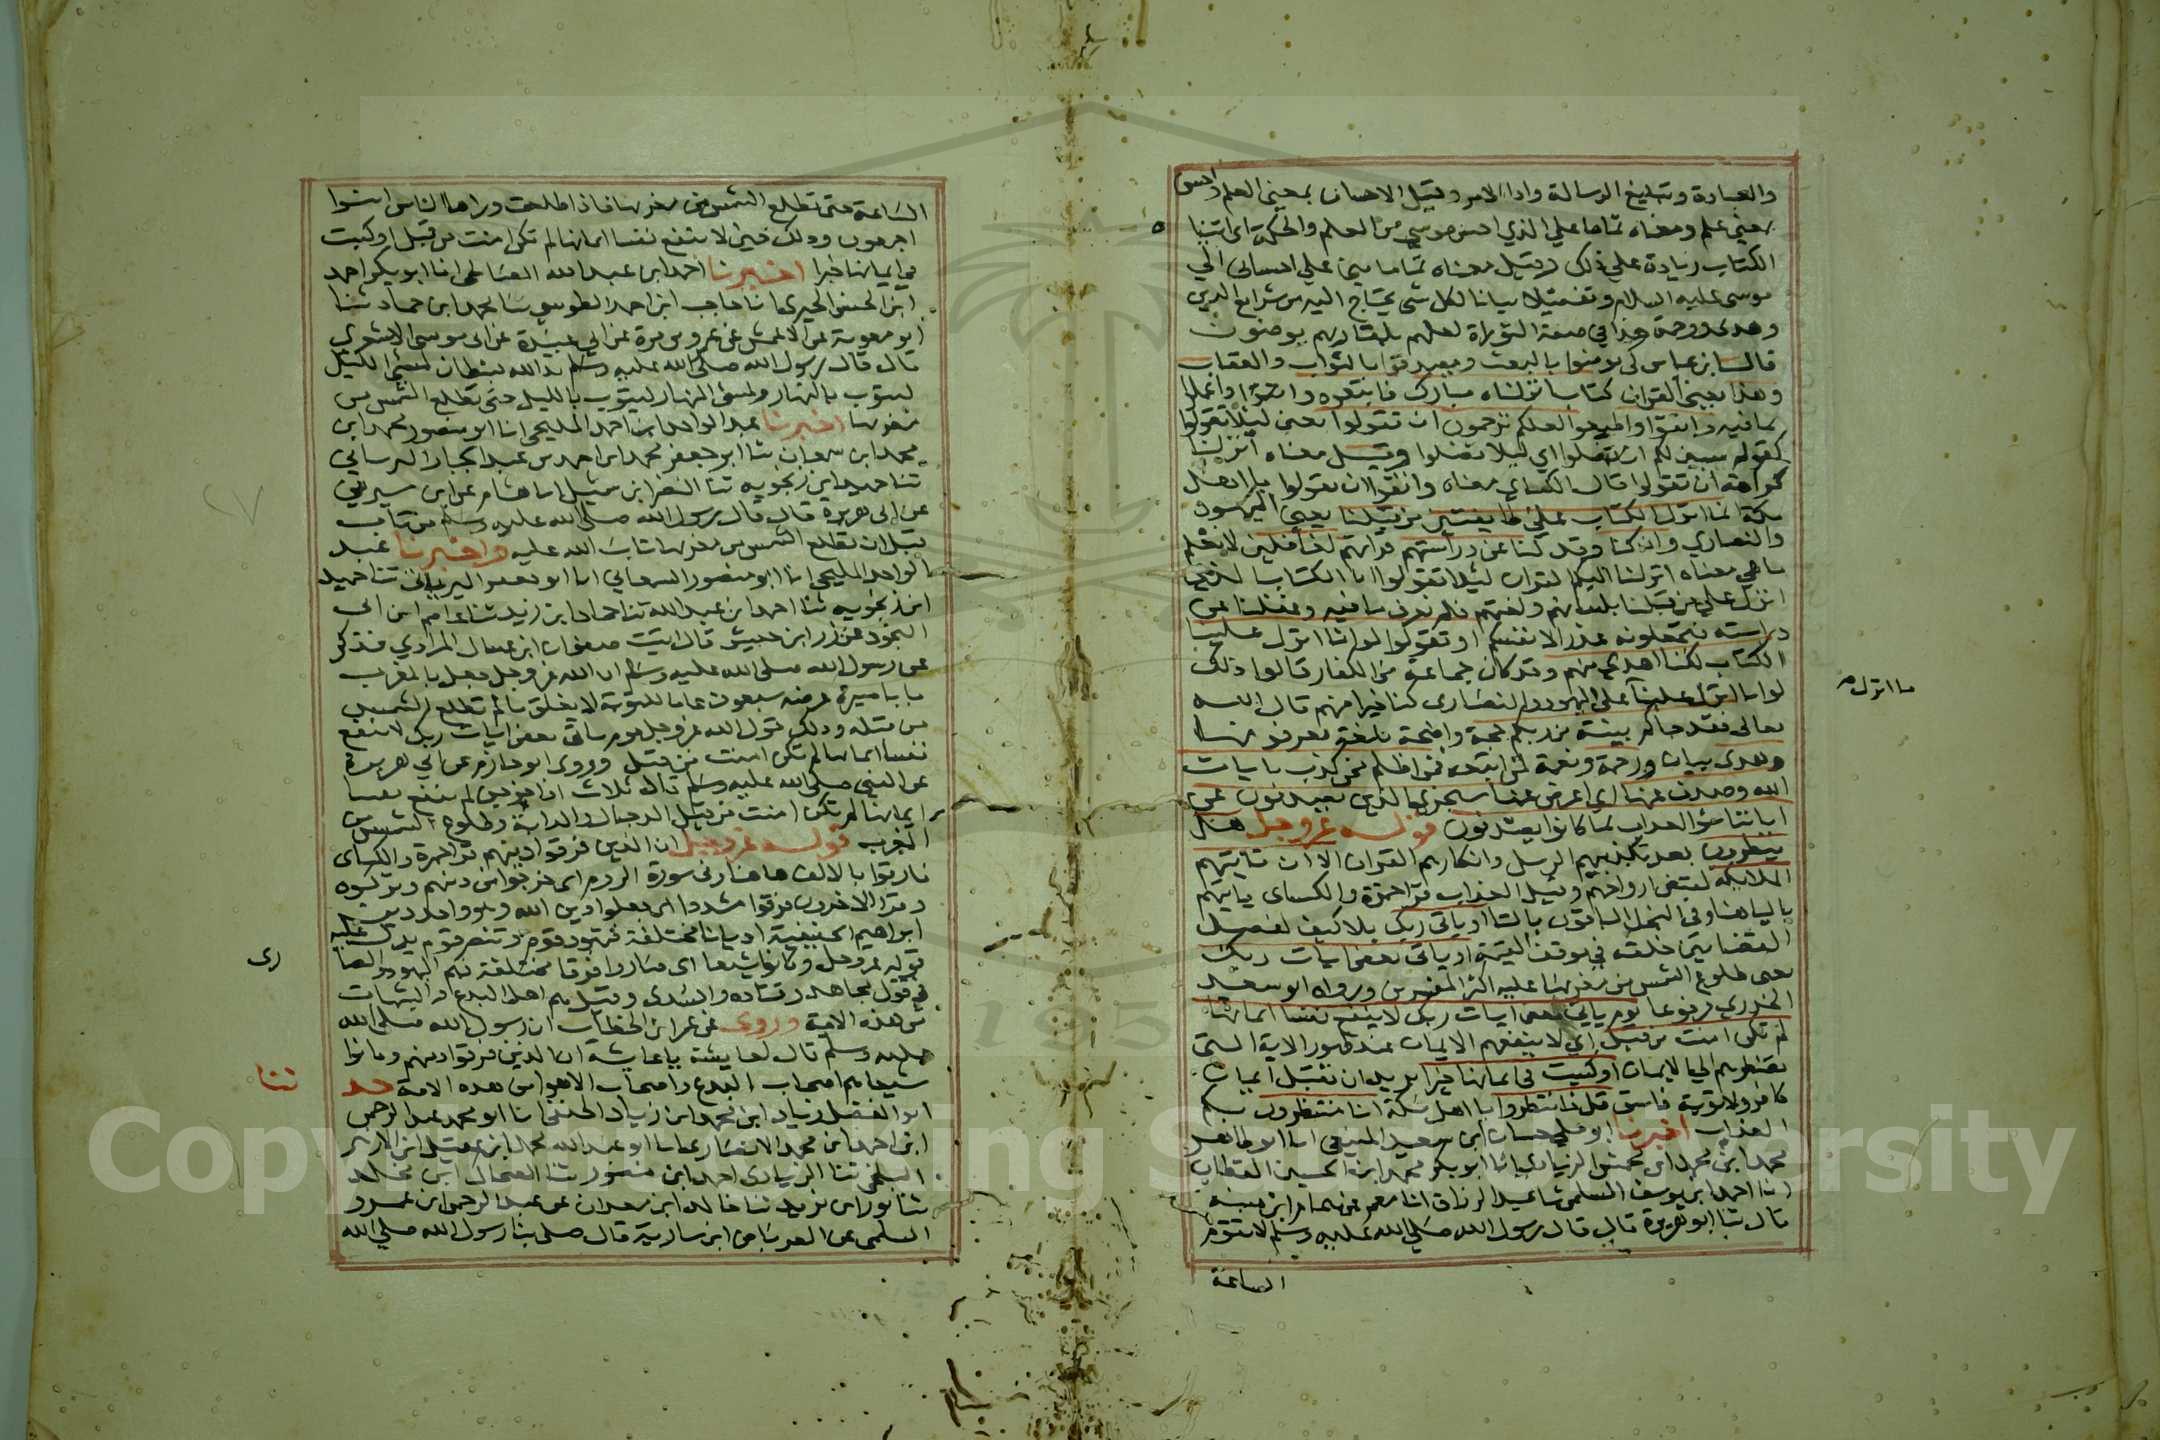 والعبادة وتبليغ الرسالة واداء الامر وقيل الاحسان بمعنى العلم واحسن
بمعنى علم ومعناه تماما على الذي احسن موسى من العلم والحكمة اي اتينا
الكتاب زيادة على ذلك وقيل معناه تماما مني على احساني الى
موسى عليه السلام وتفصيلا بيانا لكل شي يحتاج اليه من شرايع الدين
وهدى ورحمة هذا في صفة التوراة لعلهم بلقاء ربهم يومنون
قال ابن عباس كي يومنوا بالبعث ويصدقوا بالثواب والعقاب
وهذا يعني القران كتاب انزلناه مبارك فاتبعوه واعملوا
بما فيه واتقوا واطيعوا لعلكم ترحمون ان تقولوا يعني ليلا تقولوا
كقوله يبين لكم ان تضلوا اي ليلا تضلوا وقيل معناه انزلناه
كراهة ان تقولوا قال الكساي معناه واتقوا ان تقولوا يا اهل
مكة انما انزل الكتاب على طايفتين من قبلنا يعني اليهود
والنصارى وان كنا وقد كنا عن دراستهم قراتهم لغافلين لا نعلم
ما هي معناه انزلنا اليكم القران ليلا تقولوا ان الكتاب
انزل على من قبلنا بلسانهم ولغتهم فلم نعرف ما فيه وغفلنا عن
دراسته فتجعلونه عذرا لانفسكم او تقولوا لو انا انزل علينا
الكتاب لكنا اهدى منهم وقد كان جماعة من الكفار قالوا ذلك
لو انا انزل علينا على اليهود والنصارى كنا خيرا منهم قال الله
تعالى فقد جاكم بينة من ربكم حجة واضحة بلغة تعرفونها
وهدى بيان ورحمة ونعمة لمن اتبعه فمن اظلم ممن كذب بايات
الله وصدف عنها اي اعرض عنها سنجزي الذين يصدفون عن
اياتنا سو العذاب بما كانوا يصدفون قوله عز وجل هل
ينظرون بعد تكذيبهم الرسل وانكارهم القران الا ان تاتيهم
الملايكة لقبض ارواحهم وقيل العذاب قرا حمزة والكساى ياتيهم
باليا هنا وفي النحل الباقون بالتا او ياتي ربك بلا كيف لفصل
القضا بين خلقه في موقف القيمة او ياتي بعض ايات ربك
يعني طلوع الشمس من مغربها عليه اكثر المفسرين ورواه ابو سعيد
الخدري مرفوعا يوم ياتي بعض ايات ربك لا ينفع نفسا ايمانها
لم تكن امنت من قبل اي لا ينفعهم الايمان عند ظهور الاية التي
تضطرهم الى الايمان او كسبت في ايمانها خيرا يريد ان تقبل ايمان
كافر ولا توبة فاسق قل انتظروا يا اهل مكة انا منتظرون بكم
العذاب اخبرنا ابو علي حسان ابن سعيد المنيعي انا ابو طاهر
محمد ابن محمد ابن محمش الزيادي انا ابو بكر محمد ابن الحسين القطان
انا احمد ابن يوسف السلمي ثنا عبد الرزاق انا معمر عن همام ابن منبه
قال ثنا ابو هريرة قال قال رسول الله صلى الله عليه وسلم لا تقوم
الساعة
ما انزل
الساعة حتى تطلع الشمس من مغربها فاذا طلعت وراها الناس امنوا
اجمعون وذلك حين لا ينفع نفسا ايمانها لم تكن امنت من قبل او كسبت
في ايمانها خيرا اخبرنا احمد ابن عبد الله الصالحي انا ابو بكر احمد
ابن الحسن الحيري انا حاجب ابن احمد الطوسي ثنا محمد ابن حماد ثنا
ابو معوية عن الاعمش عن عمرو بن مرة عن ابي عبيدة عن ابي موسى الاشعري
قال قال رسول الله صلى الله عليه وسلم يد الله بسطان لمسي الليل
ليتوب بالنهار ولمسي النهار ليتوب بالليل حتى تطلع الشمس من
مغربها اخبرنا عبد الواحد ابن احمد المليحي انا ابو منصور محمد ابن
محمد ابن سمعان ثنا ابو جعفر محمد ابن احمد بن عبد الجبار الرياني
ثنا حميد ابن زنجويه ثنا النضر ابن شميل انا هشام عن ابن سيرين
عن ابي هريرة قال قال رسول الله صلى الله عليه وسلم من تاب
قبل ان تطلع الشمس من مغربها تاب الله عليه واخبرنا عبد
الواحد المليحي انا ابو منصور السمعاني انا ابو جعفر الرياني ثنا حميد
ابن زنجويه ثنا احمد ابن عبد الله ثنا حماد ابن زيد ثنا عاصم ابن ابي
النجود عن زر ابن حبيش قال اتيت صفوان ابن عسال المرادي فذكر
عن رسول الله صلى الله عليه وسلم ان الله عز وجل جعل بالمغرب
بابا مسيرة عرضه سبعون عاما للتوبة لا يغلق ما لم تطلع الشمس
من قبله وذلك قول الله عز وجل يوم ياتي بعض ايات ربك لا ينفع
نفسا ايمانها لم تكن امنت من قبل وروى ابو حازم عن ابي هريرة
عن النبي صلى الله عليه وسلم قال ثلاث اذا خرجن لم ينفع نفسا
ايمانها لم تكن امنت من قبل الدجال والدابة وطلوع الشمس من
المغرب قوله عز وجل ان الذين فرقوا دينهم قرا حمزة والكساى
فارقوا بالالف هاهنا وفي سورة الروم اي خرجوا من دينهم وتركوه
وقرا الاخرون فرقوا مشددا اي جعلوا دين الله وهو واحد دين
ابراهيم الحنيفية اديانا مختلفة فتهود قوم وتنصر قوم يدل عليه
قوله عز وجل وكانوا شيعا اى صاروا فرقا مختلفة فهم اليهود والنصا
رى
في قول مجاهد وقتاده والسدى وقيل هم اهل البدع والشبهات
من هذه الامة وروى عن عمر ابن الخطاب ان رسول الله صلى الله
عليه وسلم قال لعايشة يا عايشة ان الذين فرقوا دينهم وكانوا
شيعا هم اصحاب البدع واصحاب الاهوا من هذه الامة حد
ثنا
ابو الفضل زياد ابن محمد ابن زياد الحنفي انا ابو محمد عبد الرحمن
ابن احمد ابن محمد الانصاري انا ابو عبد الله محمد ابن عقيل ابن الازهر
البلخي ثنا الزيادى احمد ابن منصور ثنا الضحاك ابن مخلد
ثنا ثور ابن يزيد ثنا خالد ابن معدان عن عبد الرحمن ابن عمرو
السلمي عن العرباض ابن سارية قال صلى بنا رسول الله صلى الله